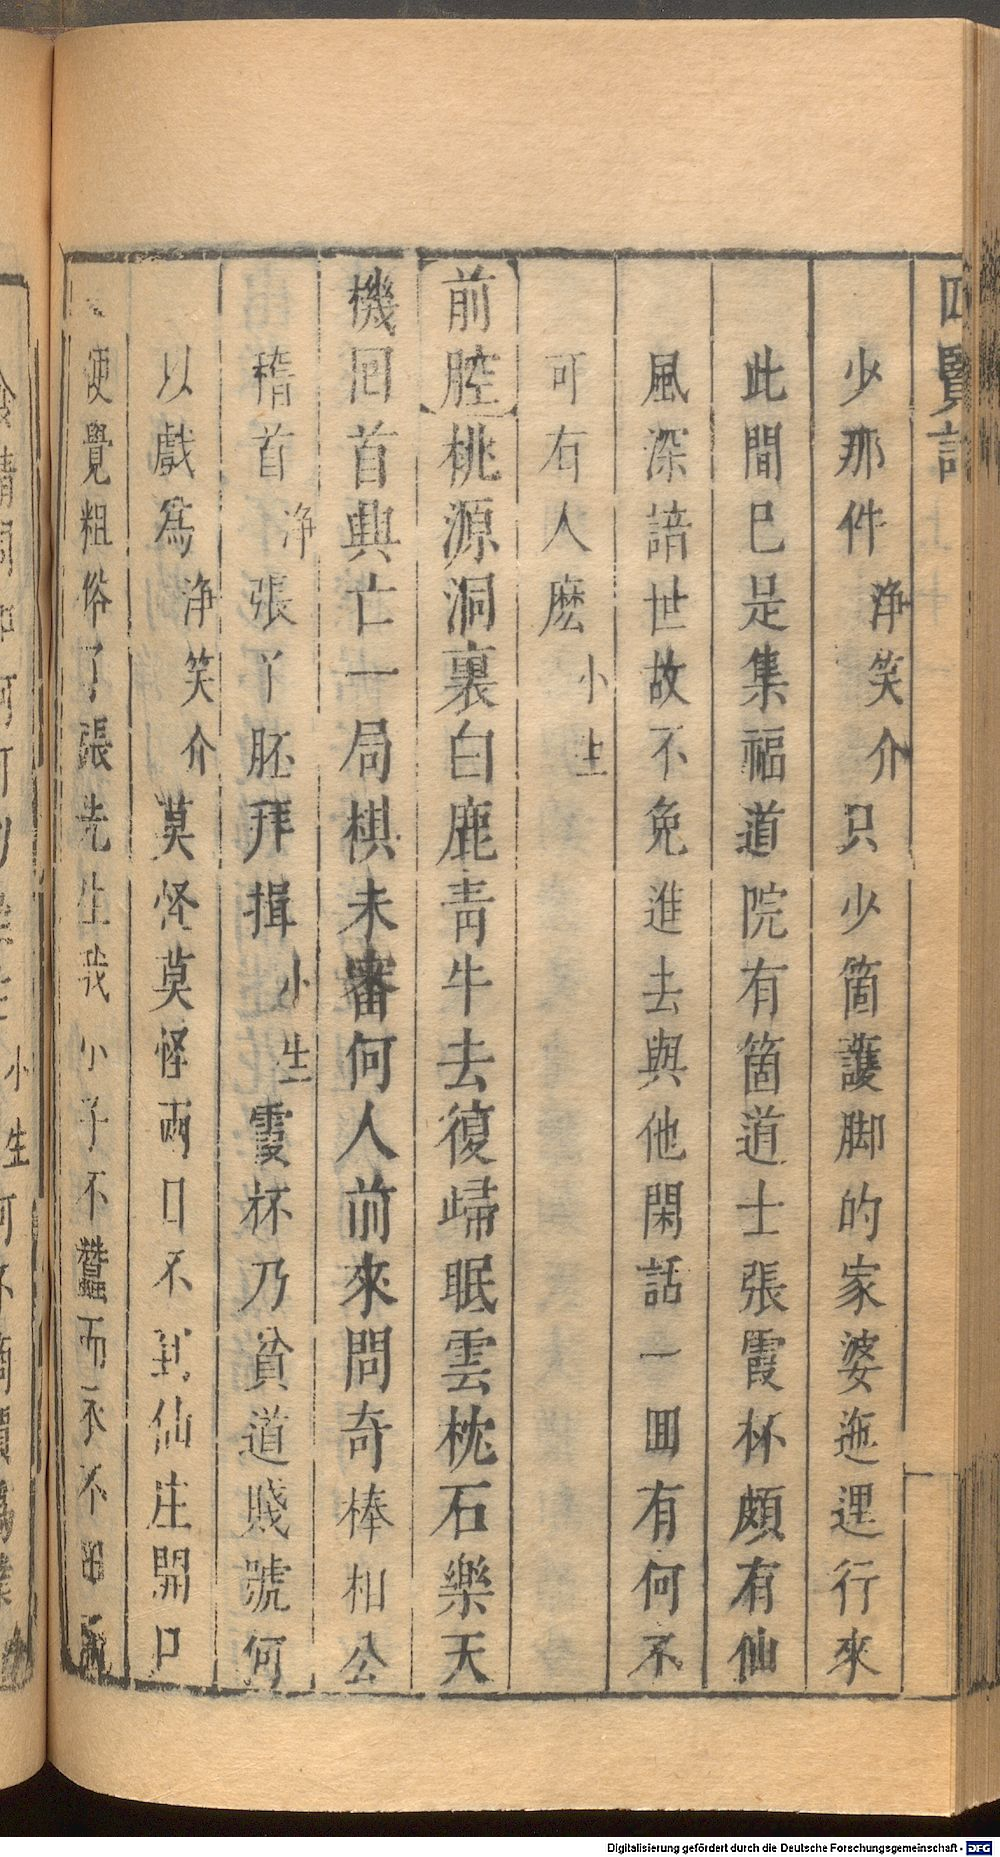 四賢記
少那件淨笑介只少箇護脚的家婆迤逞行來
此間已是集福道院有箇道士張霞杯頗有仙
風深諳世故不免進去與他閑話一囬有何不
可有人麽小生
前腔桃源洞裏白鹿青牛去復歸眠雲枕石樂天
機回首興亡一局棋未審何人前來問奇棒相公
稽首淨張丫胚拜揖小生霞杯乃貧道賤號何
以戲爲淨笑介莫怪莫怪兩口不 仙庄開口
便覺粗俗了張先生我小子不蠶而衣不田
小生
Digitalisierung gefördert durch die Deutsche Forschungsgemeinschaft - DFG